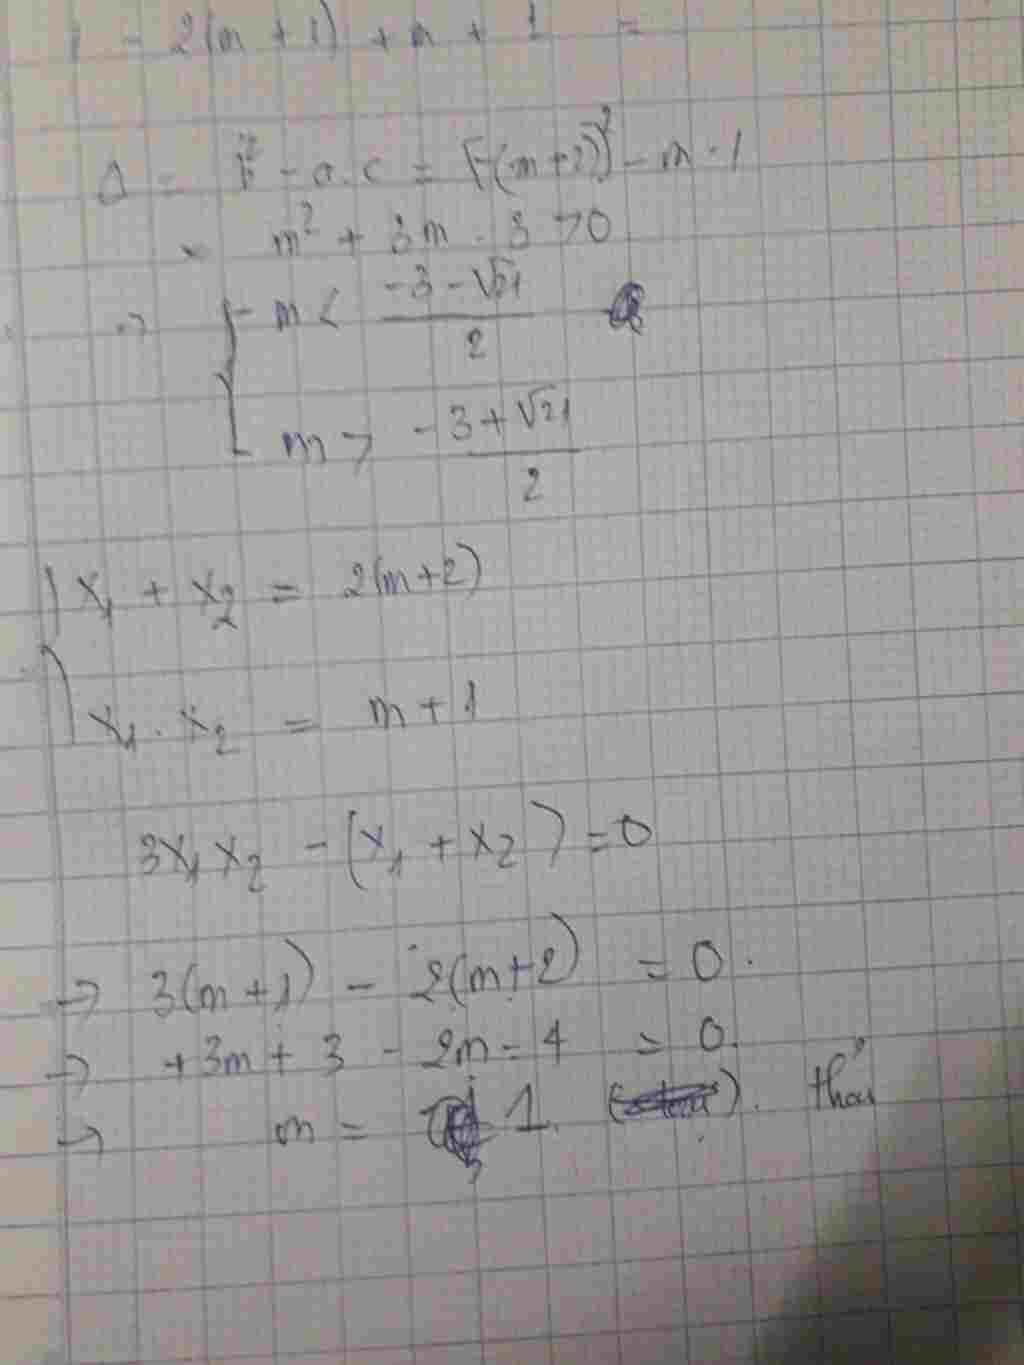 1 - 2(m + 1) + m + 1 =
Δ = b'² - a.c = [-(m+2)]² - m - 1
= m² + 3m - 3 > 0
=> [ m < (-3 - √21)/2
m > (-3 + √21)/2
{ x₁ + x₂ = 2(m+2)
x₁ . x₂ = m + 1
3x₁x₂ - (x₁ + x₂) = 0
-> 3(m+1) - 2(m+2) = 0.
-> +3m + 3 - 2m - 4 = 0.
-> m = 1. thỏa